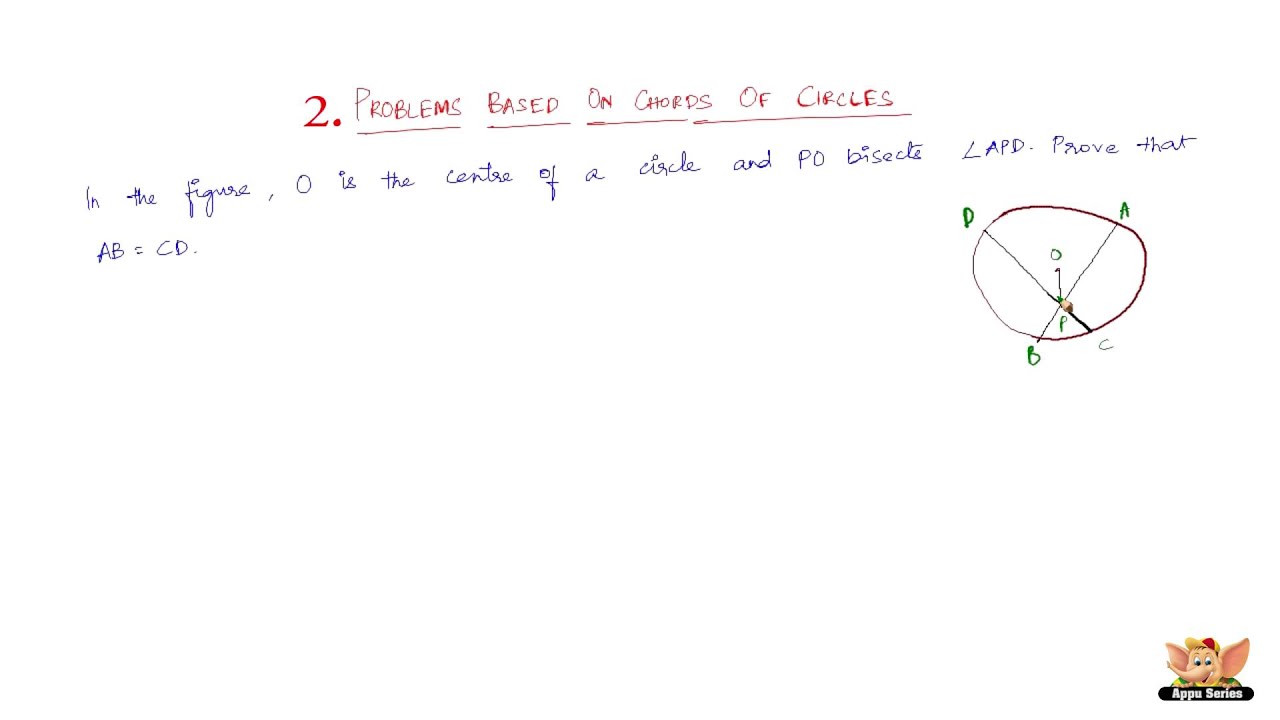 2. PROBLEMS BASED ON CHORDS OF CIRCLES
In the figure, O is the centre of a circle and PO bisects ∠APD. Prove that
AB = CD.
D
A
O
P
C
B
Appu Series